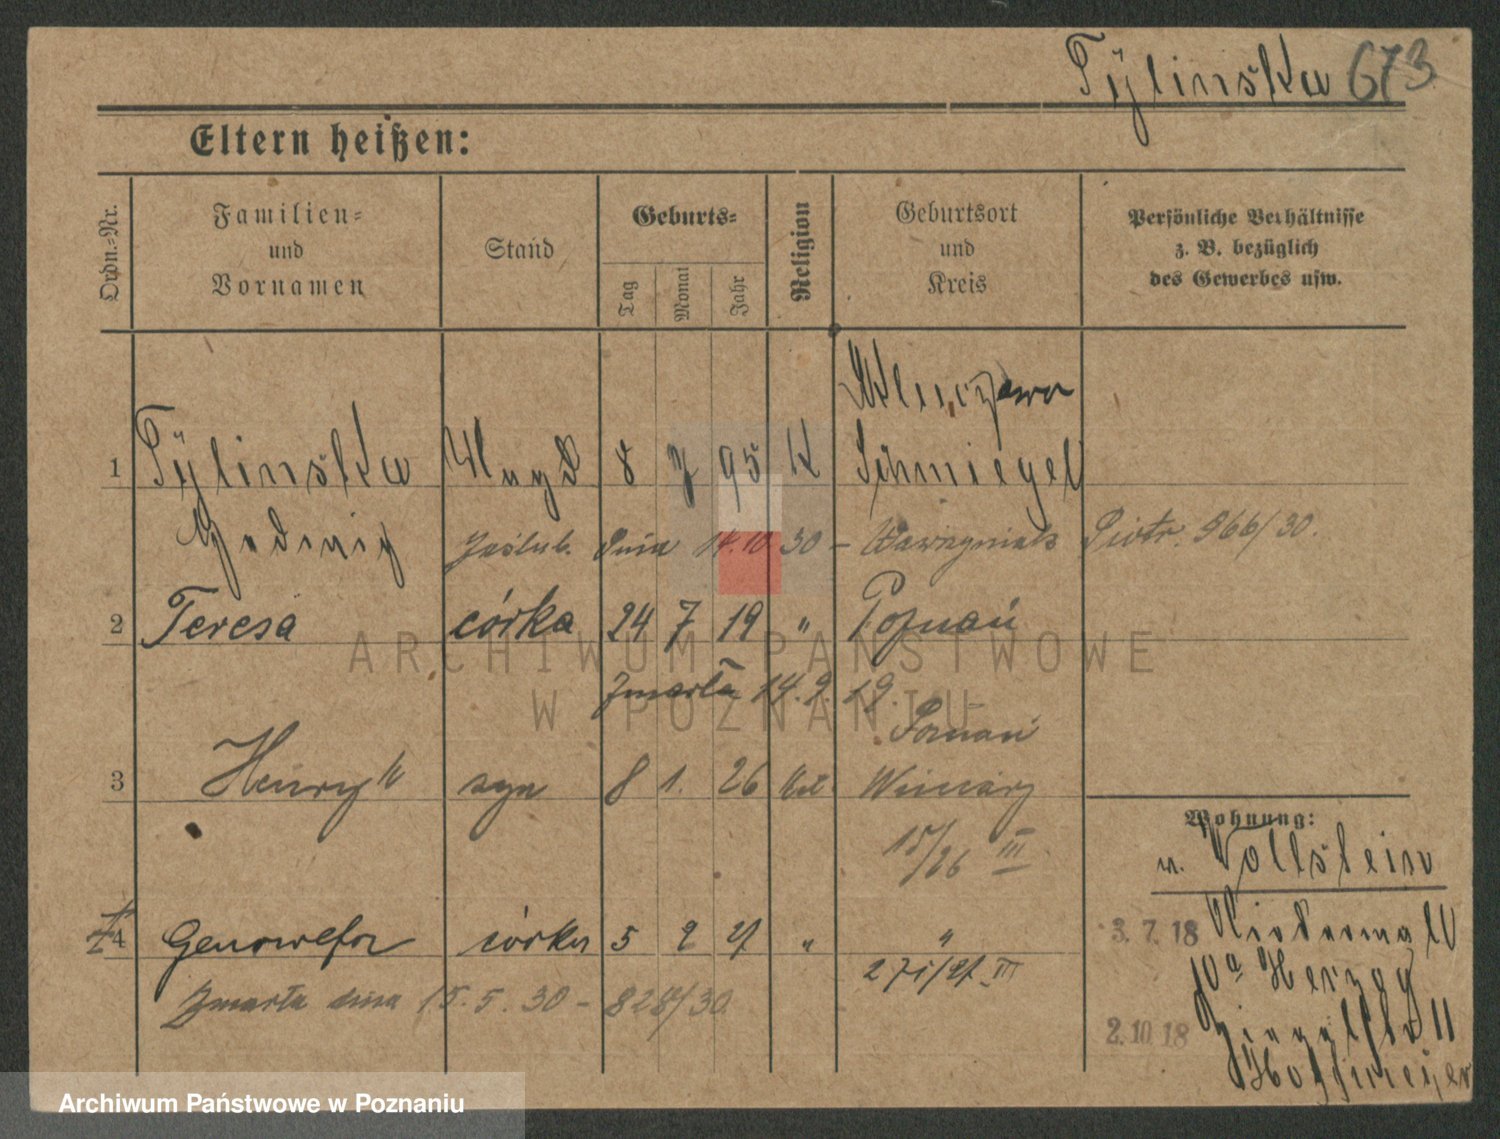 Tylinska 673
Eltern heißen:
Ordn.=Nr.
Familien=
und
Vornamen
Stand
Geburts=
Tag
Monat
Jahr
Religion
Geburtsort
und
Kreis
Persönliche Verhältnisse
z. B. bezüglich
des Gewerbes usw.
1 Tylinska Magd 8 95 K Schmiegel
Hedwig
zaślub. dnia 14.10 30 – Wawrzyniak Piotr. 566/30.
2 Teresa córka 24 7 19 " Poznań
zmarła 14.9.19.
Poznań
3 Henryk syn 8 1. 26 kat. Winiary
15/26 III
4 Genowefa córka 5 2 27 " "
271/27 III
Zmarła dnia 15.5.30 – 828/30
Wohnung:
v. Wollstein
3. 7. 18 Niederwall
10a Herzog
2. 10. 18 11
Hoffmeyer
ARCHIWUM PAŃSTWOWE
W POZNANIU
Archiwum Państwowe w Poznaniu